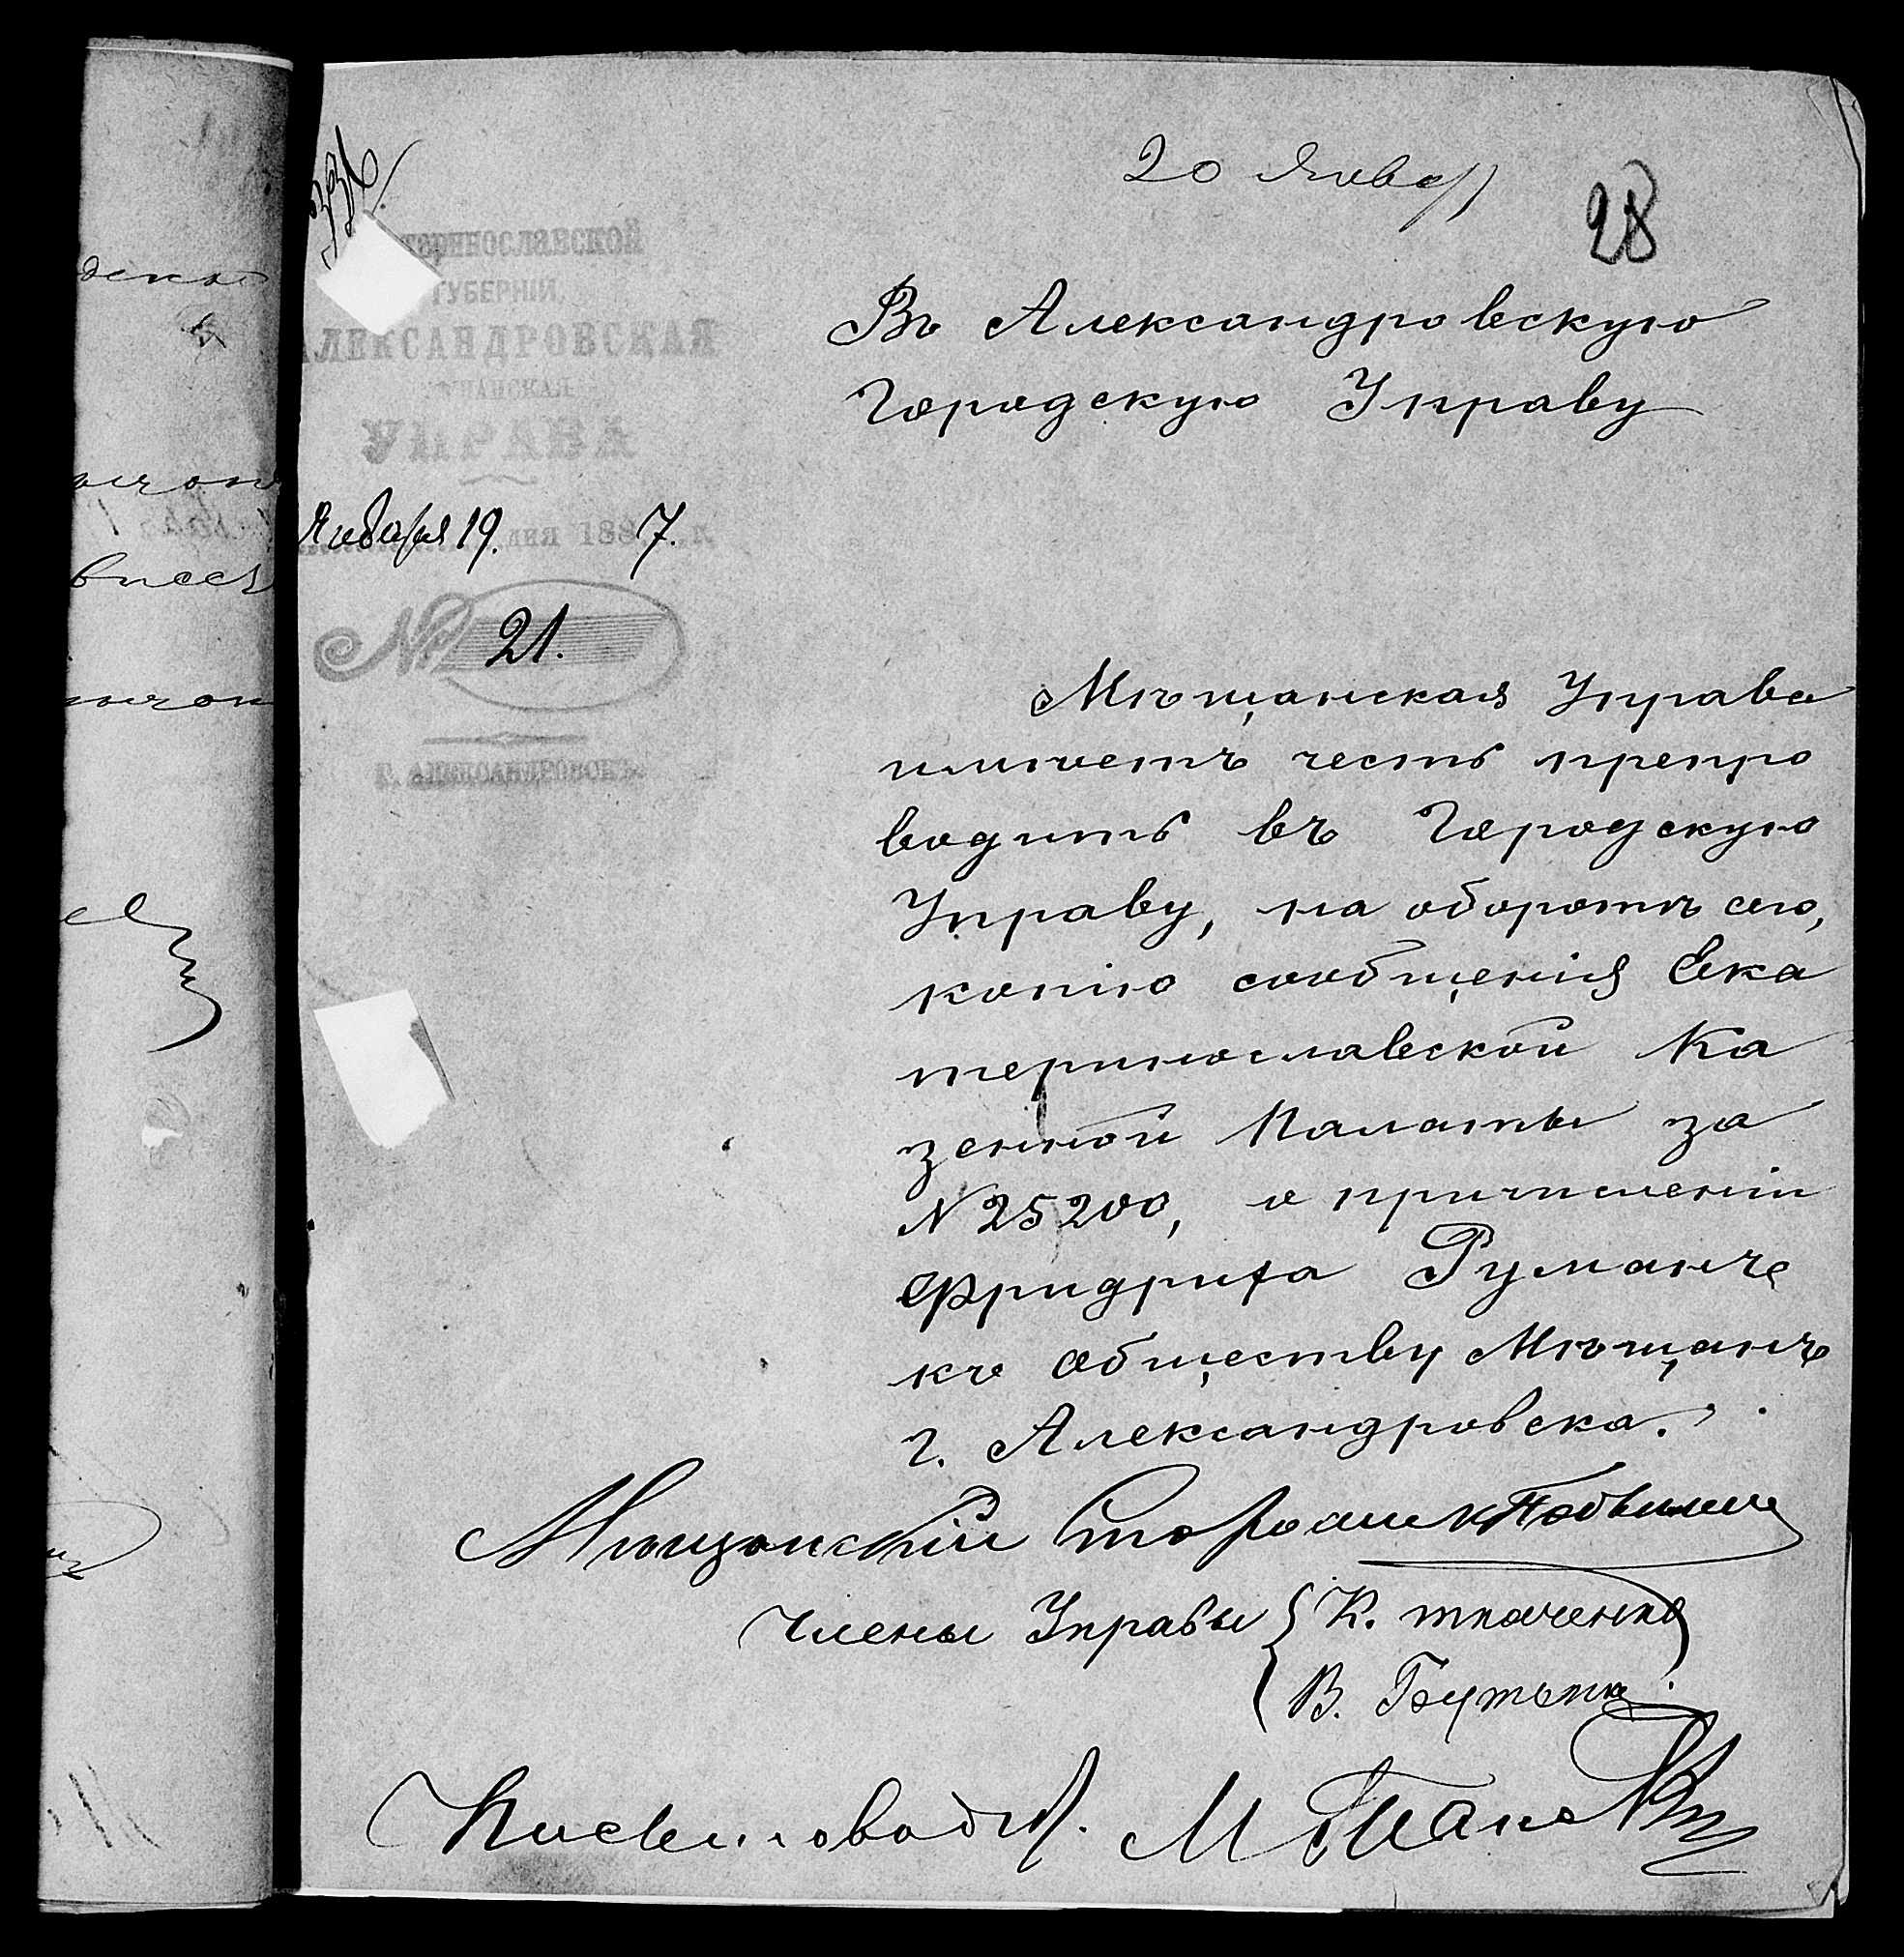 20 Январ
28
Екатеринославской
ГУБЕРНІИ,
АЛЕКСАНДРОВСКАЯ
МѢЩАНСКАЯ
УПРАВА
Января 19. дня 1887. г.
№ 21.
Г. АЛЕКСАНДРОВСКЪ.
Въ Александровскую
Городскую Управу
Мѣщанская Управа
имѣетъ честь препро
водить въ Городскую
Управу, на оборотѣ сего,
копію сообщенія Ека
теринославской Ка
зенной Палаты за
N 25200, о причисленіи
Фридриха Руманъ
къ обществу Мѣщанъ
г. Александровска.
Мѣщанскій Староста
Члены Управы { К. Ткаченко
В. Бутько
Письмоводит.